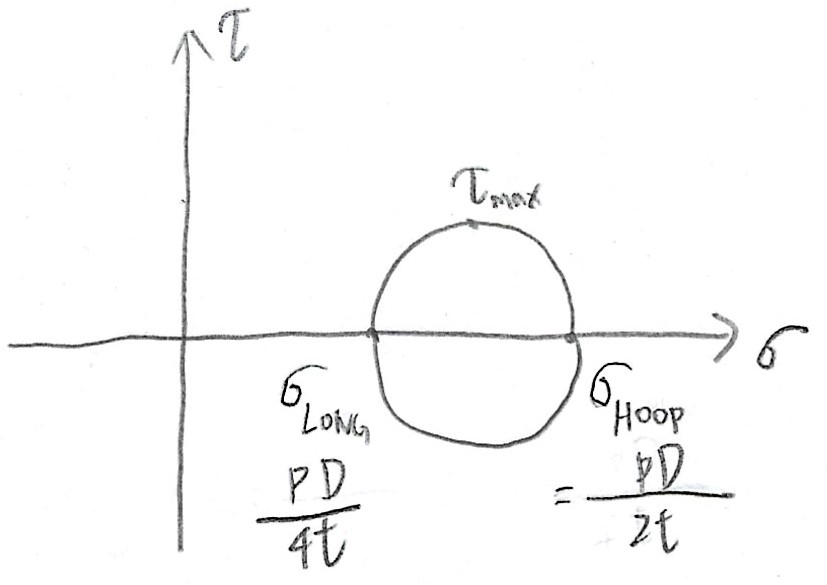 τ
τmax
σ
σLONG
PD
4t
σHOOP
= PD
2t